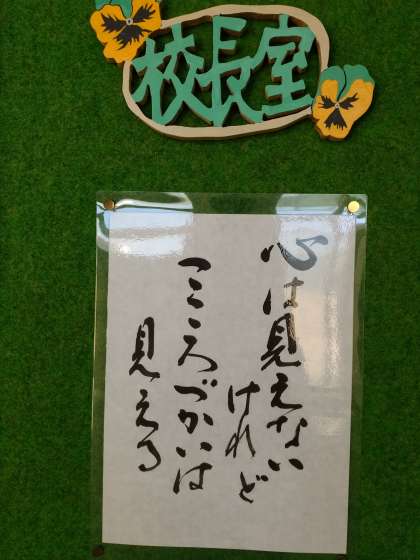 校長室
心は見えない
けれど
こころづかいは
見える